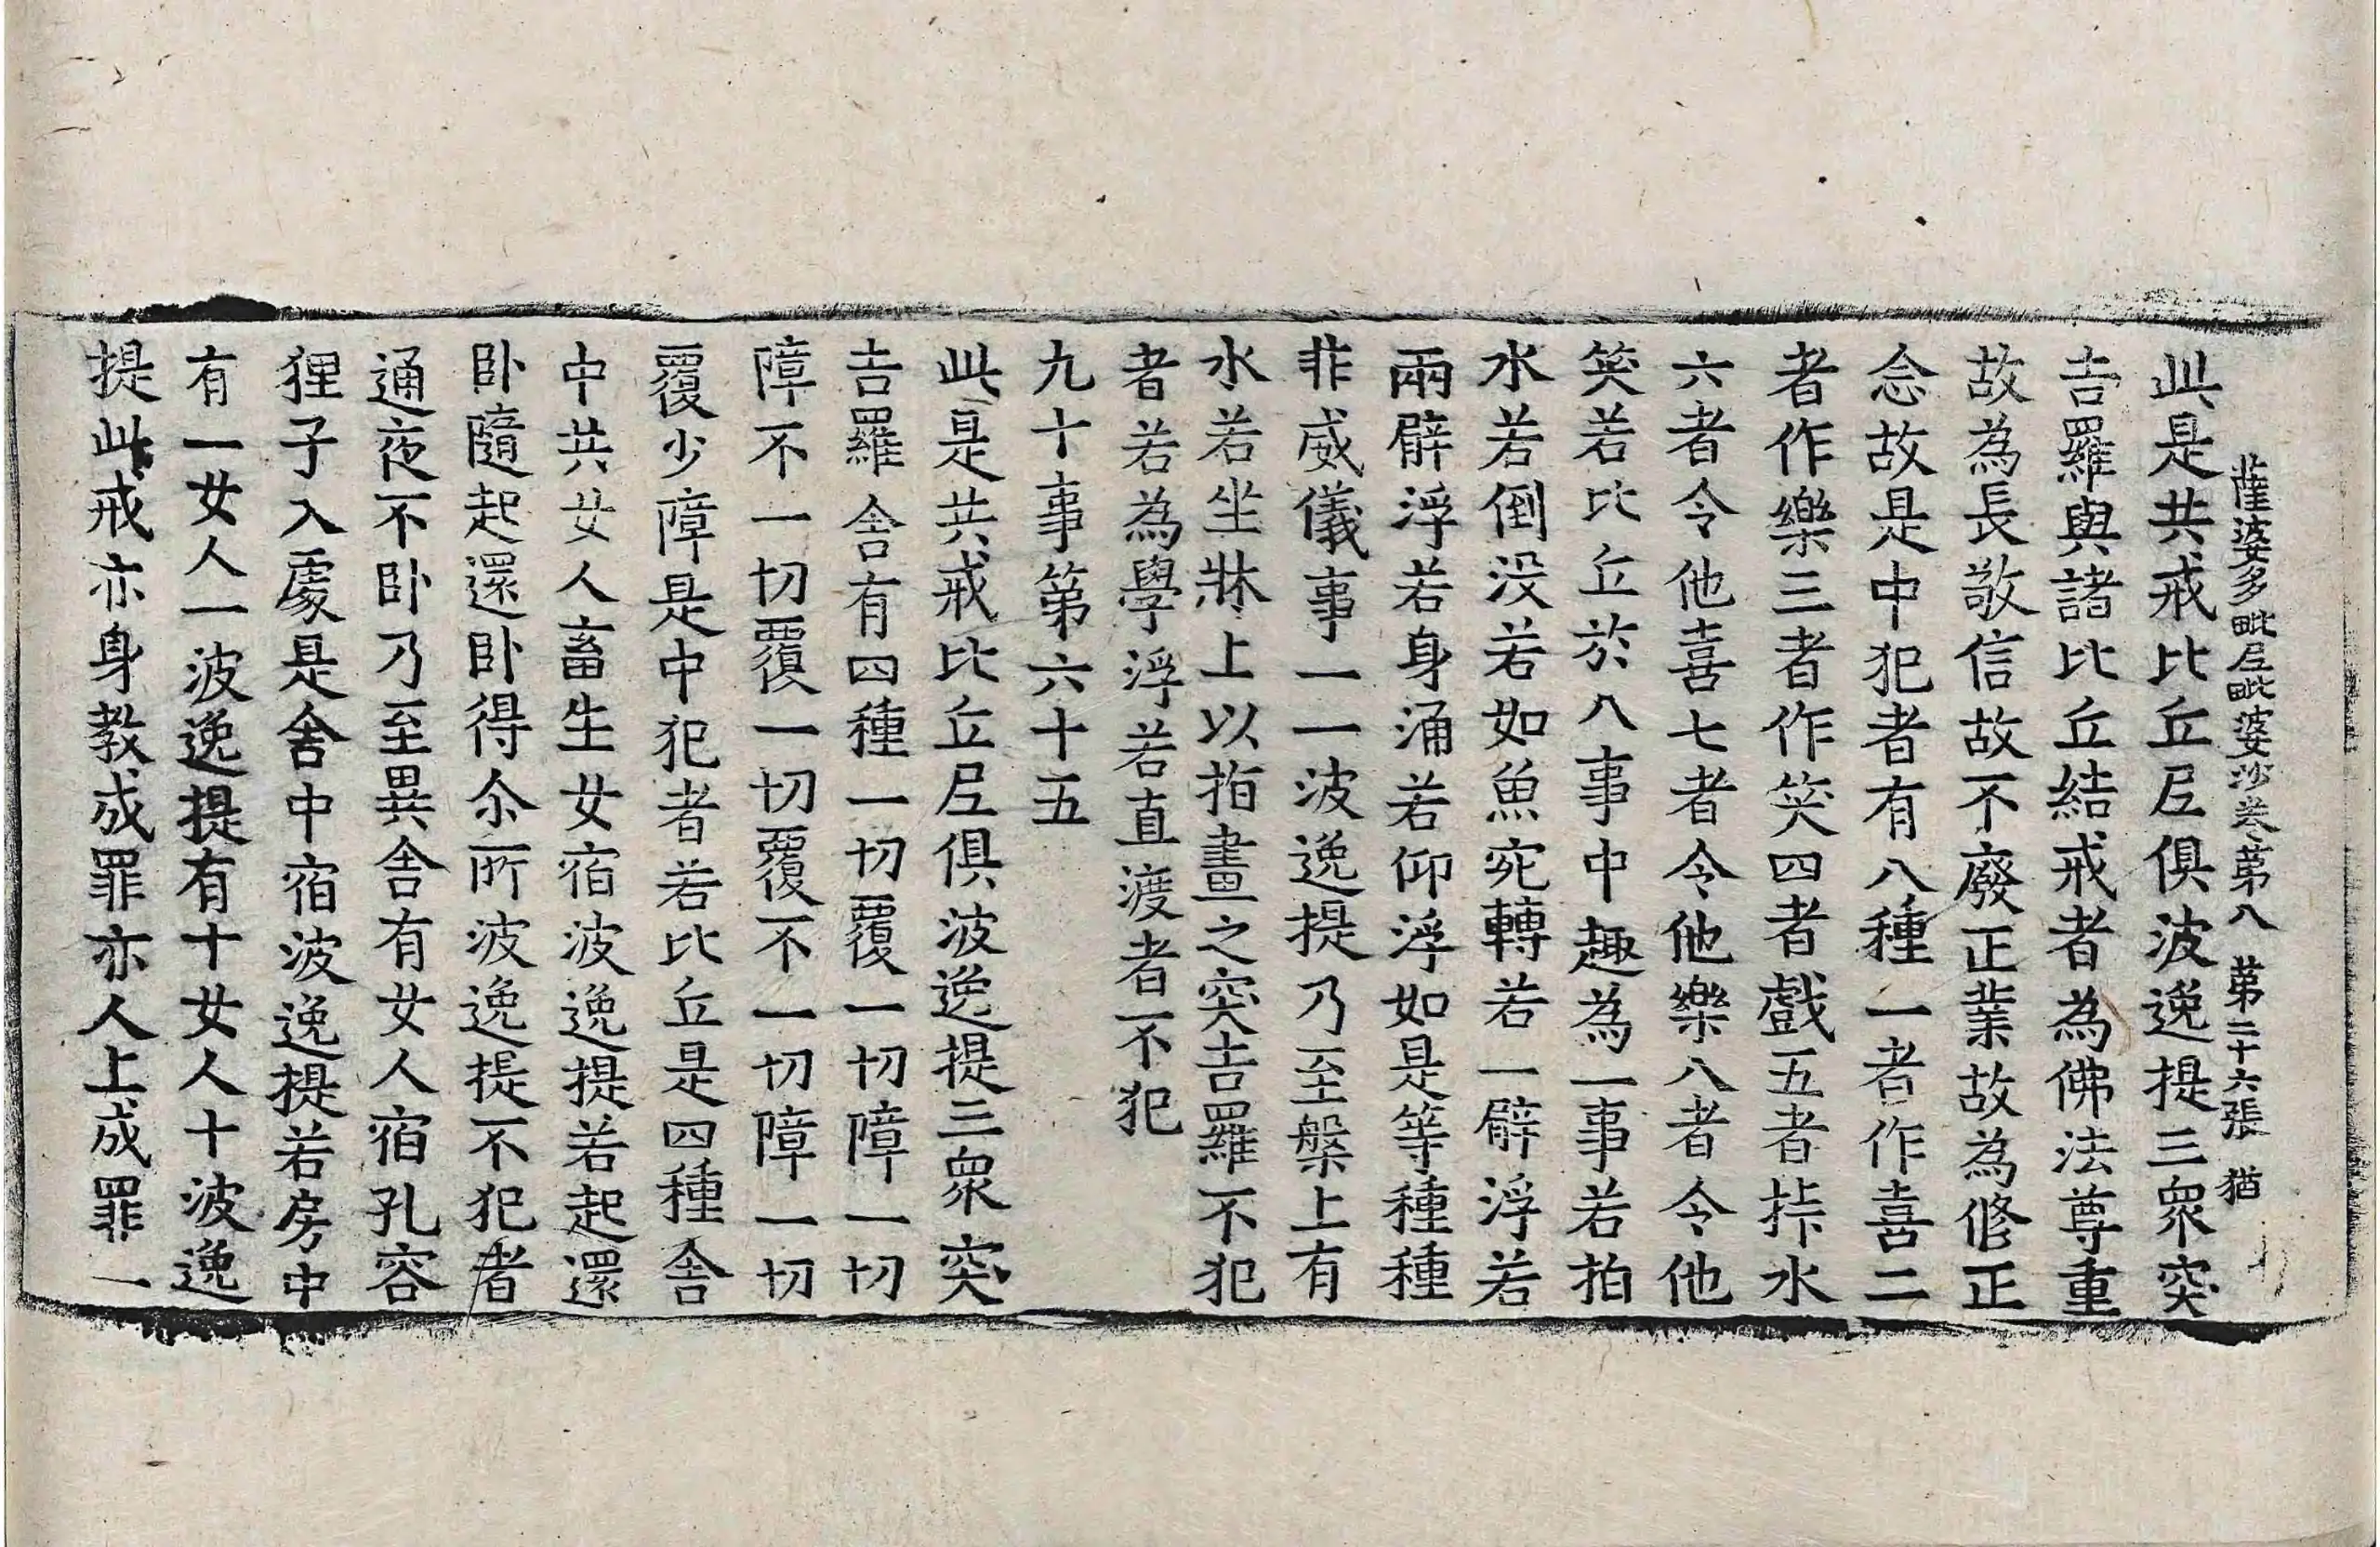 薩婆多毗尼毗婆沙卷第八　第二十六張　猶
此是共戒比丘尼俱波逸提三衆突
吉羅與諸比丘結戒者為佛法尊重
故為長敬信故不廢正業故為修正
念故是中犯者有八種一者作喜二
者作樂三者作笑四者戲五者㧊水
六者令他喜七者令他樂八者令他
笑若比丘於八事中趣為一事若拍
水若倒没若如魚宛轉若一臂浮若
兩臂浮若身涌若仰浮如是等種種
非威儀事一一波逸提乃至槃上有
水若坐牀上以指畫之突吉羅不犯
者若為學浮若直渡者不犯
九十事第六十五
此是共戒比丘尼俱波逸提三衆突
吉羅舍有四種一切覆一切障一切
障不一切覆一切覆不一切障一切
覆少障是中犯者若比丘是四種舍
中共女人畜生女宿波逸提若起還
卧隨起還卧得尒所波逸提不犯者
通夜不卧乃至異舍有女人宿孔容
狸子入處是舍中宿波逸提若房中
有一女人一波逸提有十女人十波逸
提此戒亦身教成罪亦人上成罪一